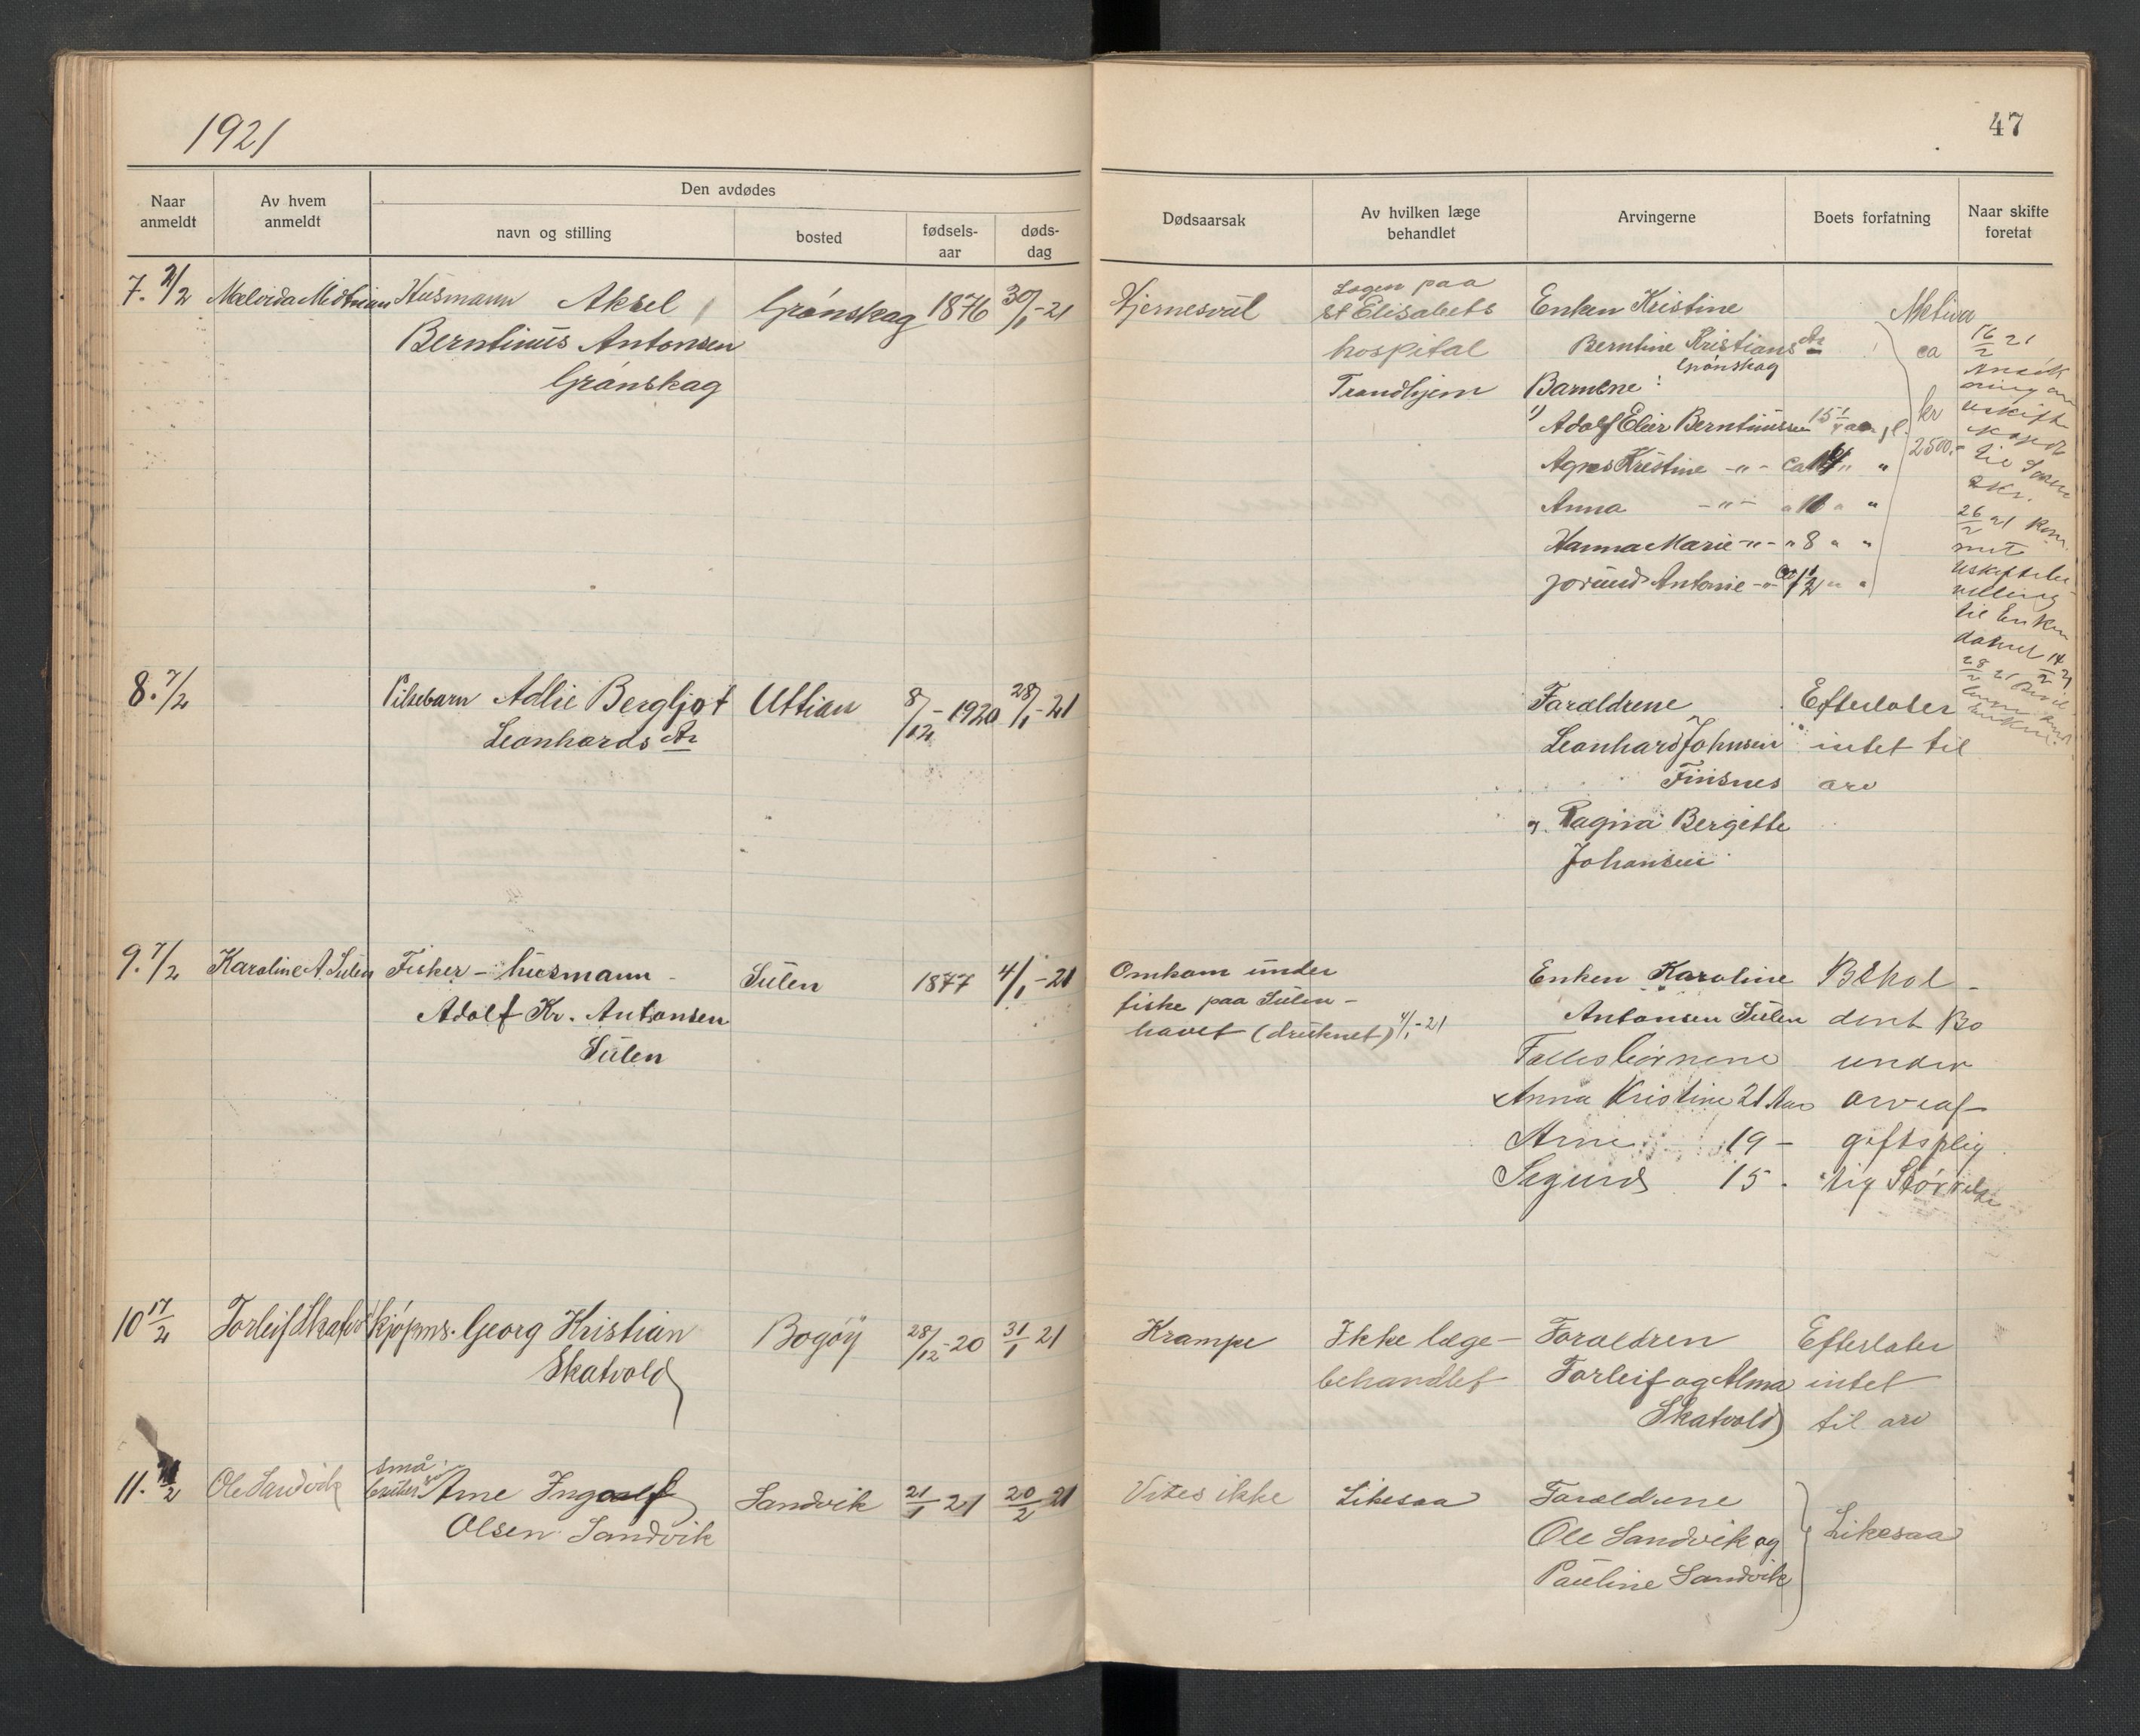 1921
47
Naar anmeldt
Av hvem anmeldt
Den avdødes
navn og stilling
bosted
fødsels-aar
døds-dag
Dødsaarsak
Av hvilken læge behandlet
Arvingerne
Boets forfatning
Naar skifte foretat
7. 2/2
Husmann Aksel
Grønskag
1876
30/1-21
Hjernesvul
Lægen paa
St Elisabets
hospital
Trondhjem
Berntinus Antonsen
Grønskag
Enken Kristine
Berntine Kristians dtr
Grønskag
Barnene:
1) Adolf Elier Berntinussen 15 1
Agnes Kristine -"- Ca 14 " "
Anna -"- " 10 " "
Hanna Marie -"- " 8 " "
Jorund Antonie -"- Ca 1 1/2 " "
Aktiva
ca
kr
2500.-
16/2 21
Ansøk
ning om
uskift
til Soren
skr.
26/2 21 Kom
met
uskiftebe
villing
til Enken
datert 14/2 21
28/2 21
8. 7/2
Pikebarn Adlie Bergljot
Leonhards dtr
Uttian
8/12-1920
28/1-21
Foræeldrene
Leonhard Johnsen
Finsnes
og Ragna Bergitte
Johansen
Efterlater
intet til
arv
9. 7/2
Karoline A. Sulen
Fisker - husmann
Adolf Kr. Antonsen
Sulen
Sulen
1877
4/1-21
Omkom under
fiske paa Sulen-
havet (druknet) 4/1-21
Enken Karoline
Antonsen Sulen
Fællesbørnene
Anna Kristine 21 Aar
Arne 19 -
Sigurd 15 -
Behol-
dent Bo
under
arveaf-
giftsplig
tig Størrelse
10 17/2
Torleif Skatvold
kjøpms. Georg Kristian
Skatvold
Bogøy
28/12-20
31/1 21
Krampe
Ikke læge-
behandlet
Foræeldren
Torleif og Alma
Skatvold
Efterlater
intet
til arv
11.
Ole Sandvik
små
Arne Ingolf
Olsen Sandvik
Sandvik
21/1 21
20/2 21
Vites ikke
Likesaa
Foræeldrene
Ole Sandvik og
Pauline Sandvik
Likesaa